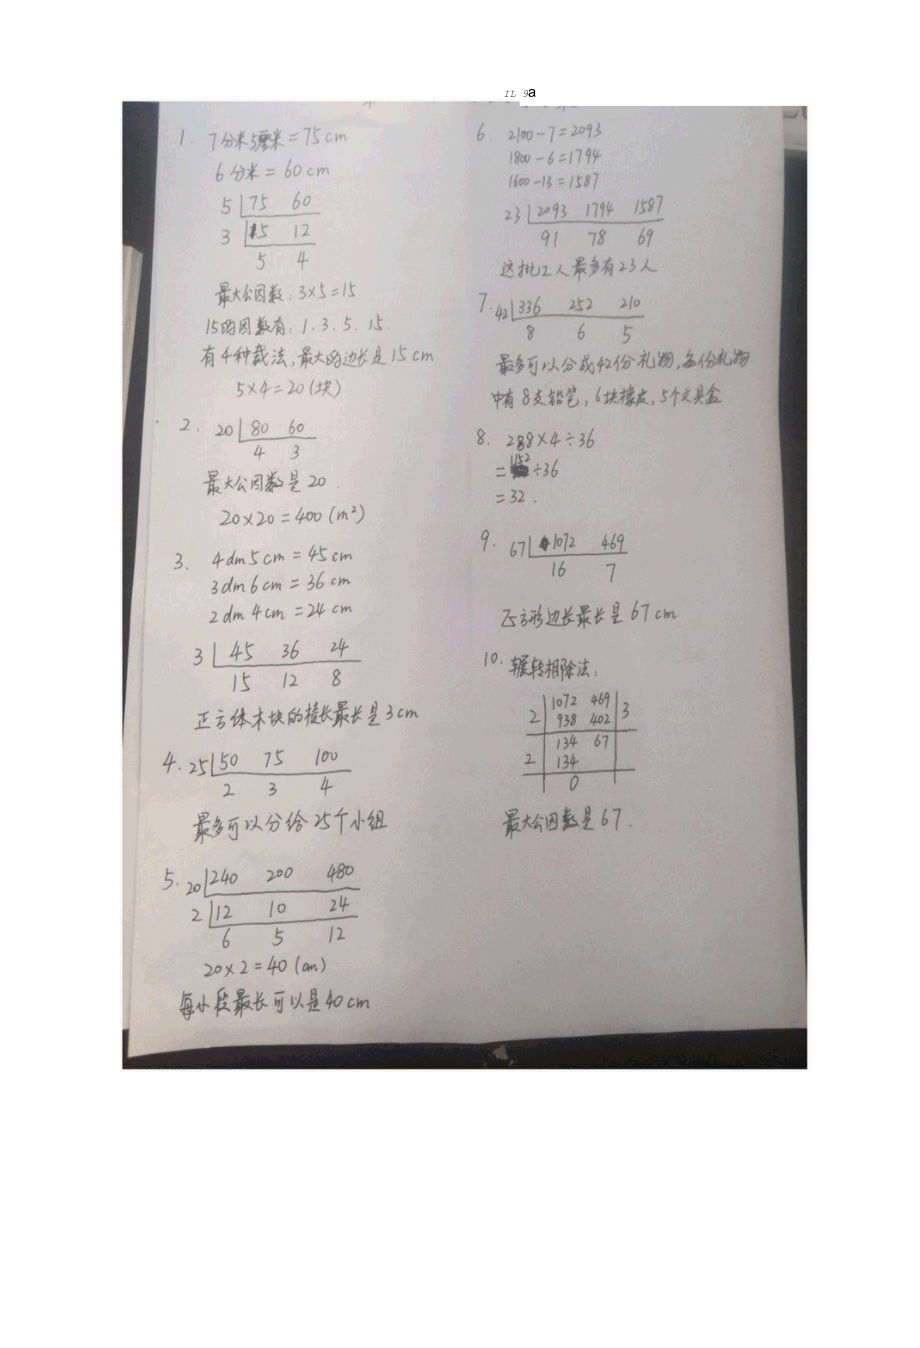 IL 9a
1. 7分米5厘米=75cm
6分米=60cm
5 75 60
3 15 12
5 4
最大公因数:3×5=15
15的因数有:1.3.5.15.
有4种裁法,最大的边长是15cm
5×4=20(块)
2. 20 80 60
4 3
最大公因数是20.
20×20=400(m²)
3. 4dm5cm=45cm
3dm6cm=36cm
2dm4cm=24cm
3 45 36 24
15 12 8
正方体木块的棱长最长是3cm
4. 25 50 75 100
2 3 4
最多可以分给25个小组
5. 20 240 200 480
2 12 10 24
6 5 12
20×2=40(cm)
每小段最长可以是40cm
6. 2100-7=2093
1800-6=1794
1600-13=1587
23 2093 1794 1587
91 78 69
这批工人最多有23人
7. 42 336 252 210
8 6 5
最多可以分成42份礼物,每份礼物
中有8支铅笔,6块橡皮,5个文具盒
8. 288×4÷36
=1152÷36
=32.
9. 67 1072 469
16 7
正方形边长最长是67cm
10. 辗转相除法:
1072 469
2 938 402 3
134 67
2 134
0
最大公因数是67.